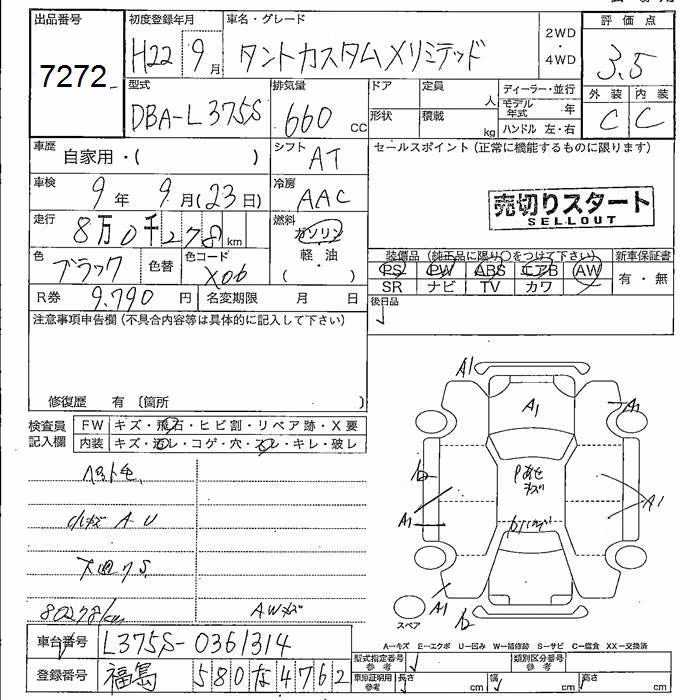 出品番号
7272
初度登録年月
H22 9月
車名・グレード
タントカスタムXリミテッド
2WD
・
4WD
評価点
3.5
型式
DBA-L375S
排気量
660 CC
ドア
定員
人
形状
積載
kg
ディーラー・並行
モデル年式 年
ハンドル 左・右
外装
内装
C
C
車歴
自家用・( )
シフト
AT
セールスポイント(正常に機能するものに限ります)
売切りスタート
SELLOUT
車検
9年 9月(23日)
冷房
AAC
走行
8万0千278km
燃料
ガソリン
・
軽・油
( )
色
ブラック
色替
色コード
X06
装備品(純正品に限り○をつけて下さい)
新車保証書
PS PW ABS エアB AW
SR ナビ TV カワ
有・無
R券 9.790円
名変期限 月 日
後日品
注意事項申告欄(不具合内容等は具体的に記入して下さい)
修復歴 有(箇所
検査員
記入欄
FW キズ・飛石・ヒビ割・リペア跡・X要
内装 キズ・汚レ・コゲ・穴・スレ・キレ・破レ
ペット毛
小キズ A-U
下廻りS
80278km
AWキズ
A1
A1
A1
A1
A1
A1
スペア
車台番号 L375S-0361314
登録番号 福島 580な4762
A―キズ E―エクボ U―凹み W―補修跡 S―サビ C―腐食 XX―交換済
型式指定番号
参考
類別区分番号
参考
車庫証明用
参考
長さ cm
幅 cm
高さ cm